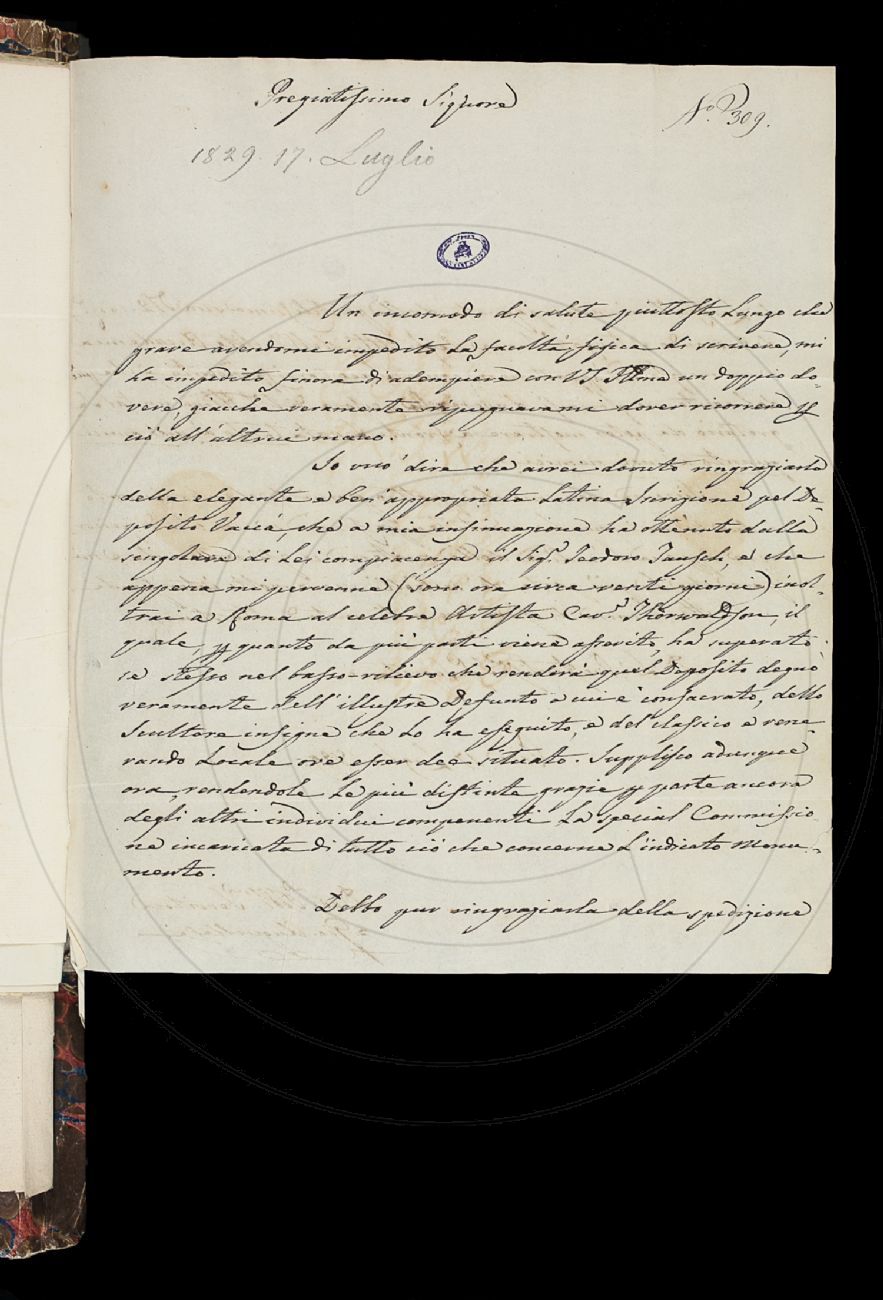 Pregiatissimo Signore
N.º 309.
1829. 17. Luglio
Un incomodo di salute piuttosto lungo che
grave avendomi impedito la facoltà fisica di scrivere, mi
ha impedito finora di adempiere con VS Illma un doppio do-
vere, giacchè veramente ripugnavami dover ricorrere p
ciò all'altrui mano.
Io vuo' dire che avrei dovuto ringraziarla
della elegante e ben appropriata Latina Iscrizione pel De-
posito Vaccà, che a mia insinuazione ha ottenuto dalla
singolare di Lei compiacenza il Sig.r Teodoro Tausch, e che
appena mi pervenne (sono ora circa venti giorni) inol-
trai a Roma al celebre Artista Cav.r Thorwaldson, il
quale, p quanto da più parti viene asserito, ha superato
se stesso nel basso-rilievo che renderà quel Deposito degno
veramente dell'illustre Defunto a cui è consacrato, dello
Scultore insigne che lo ha eseguito, e del classico e vene-
rando Locale ove esser dee situato. Supplisco adunque
ora, rendendole le più distinte grazie p parte ancora
degli altri individui componenti la special Commissio-
ne incaricata di tutto ciò che concerne l'indicato Monu-
mento.
Debbo pur ringraziarla della spedizione